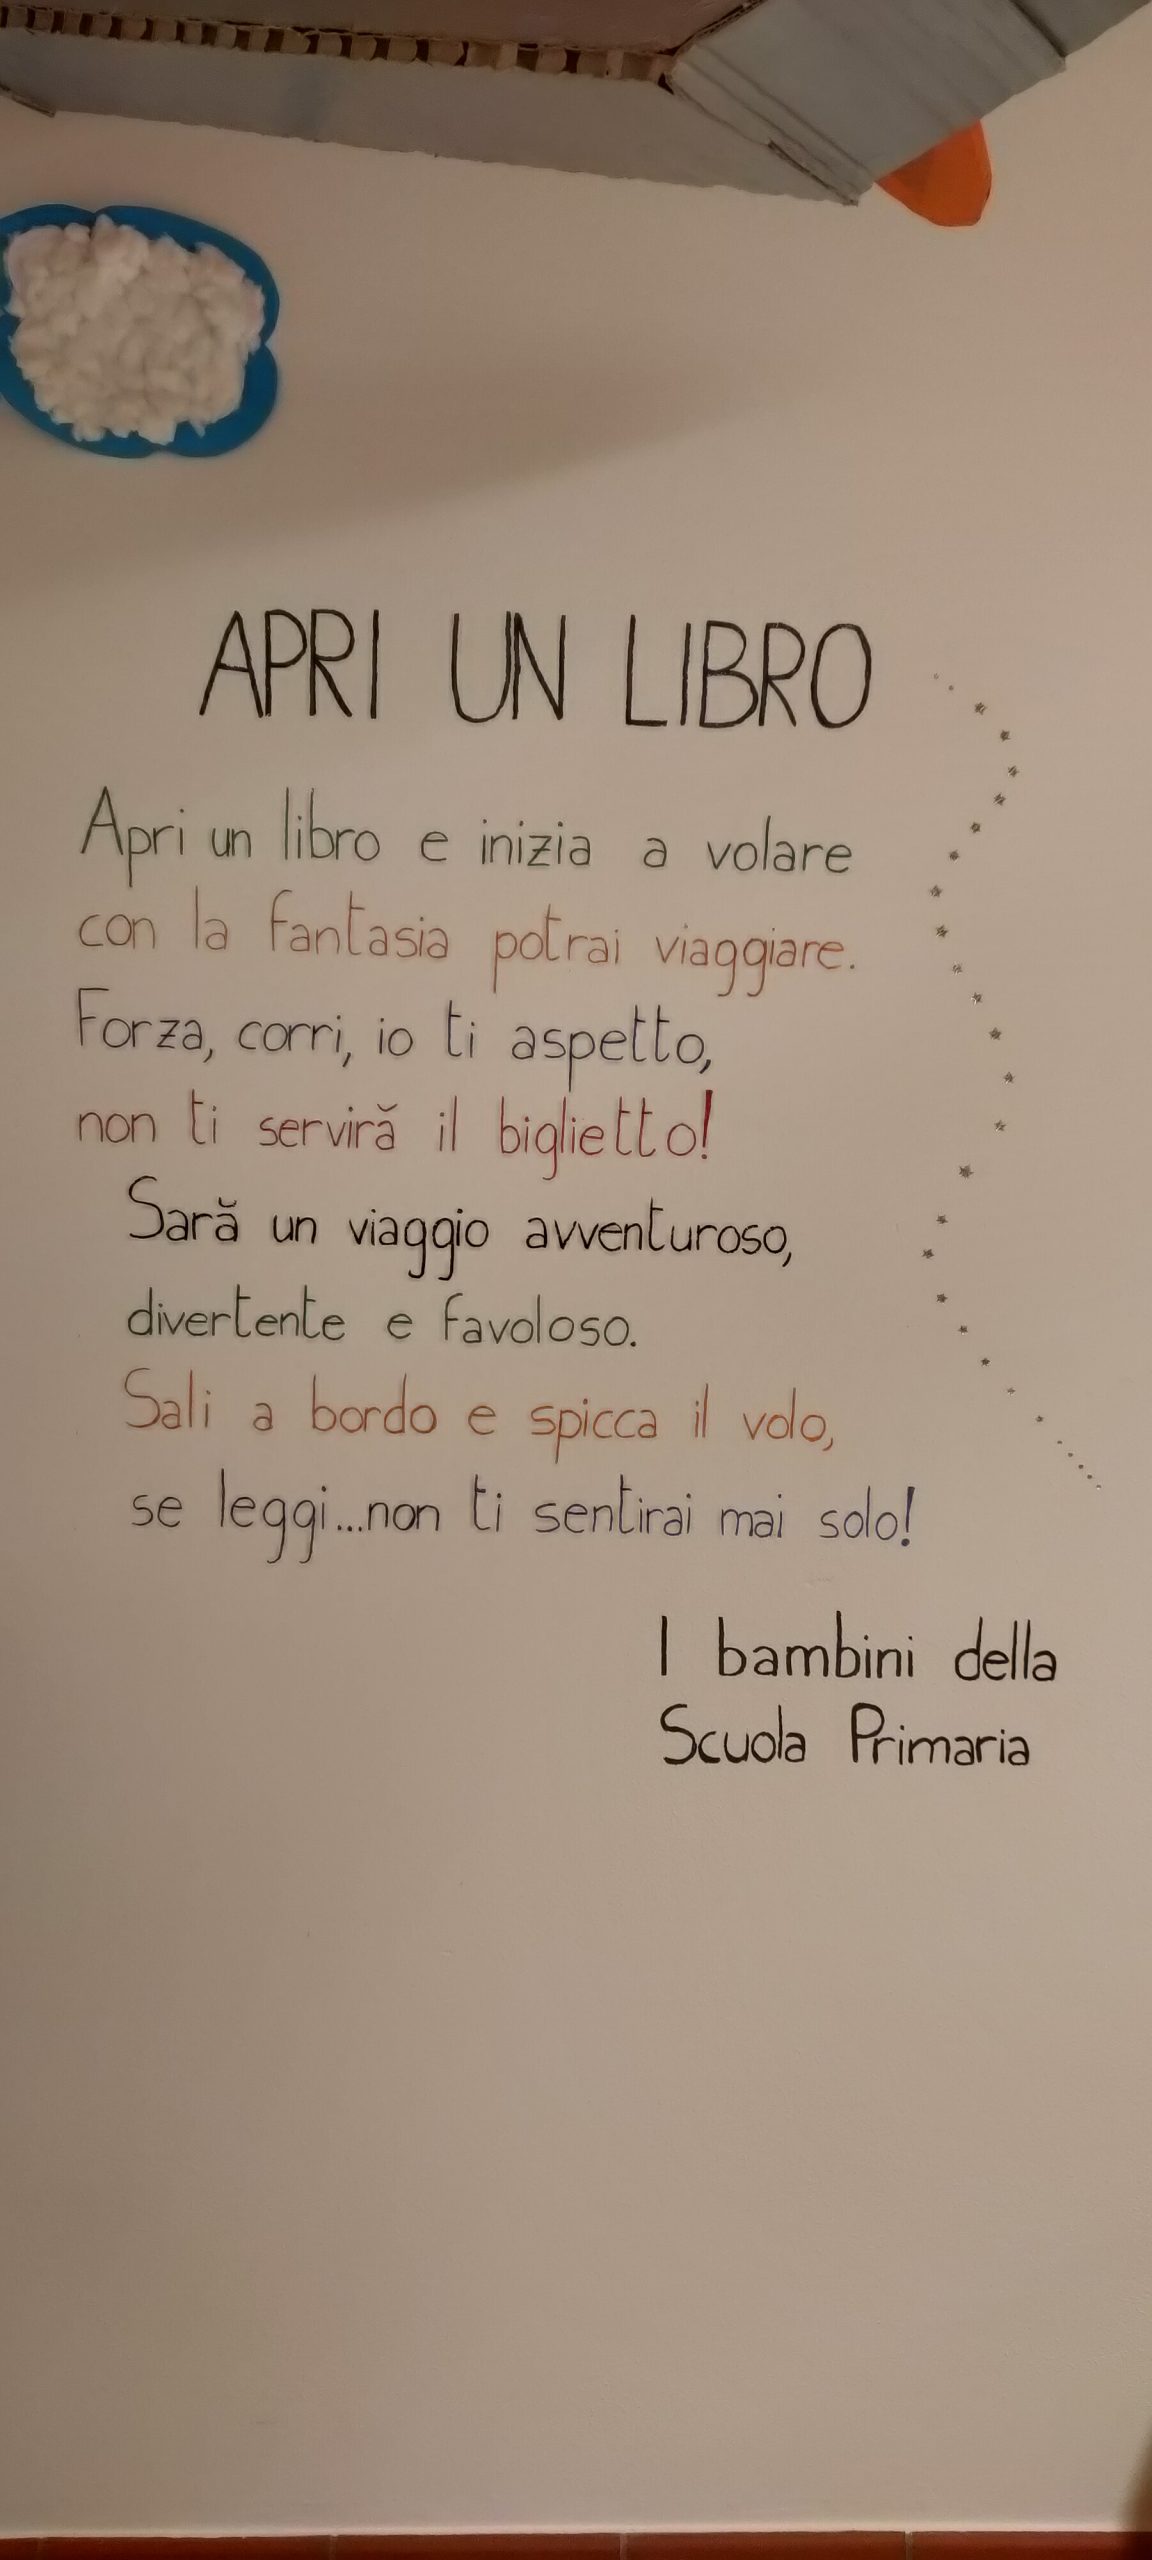 APRI UN LIBRO
Apri un libro e inizia a volare
con la fantasia potrai viaggiare.
Forza, corri, io ti aspetto,
non ti serviră il biglietto!
Sară un viaggio avventuroso,
divertente e favoloso.
Sali a bordo e spicca il volo,
se leggi...non ti sentirai mai solo!
I bambini della
Scuola Primaria